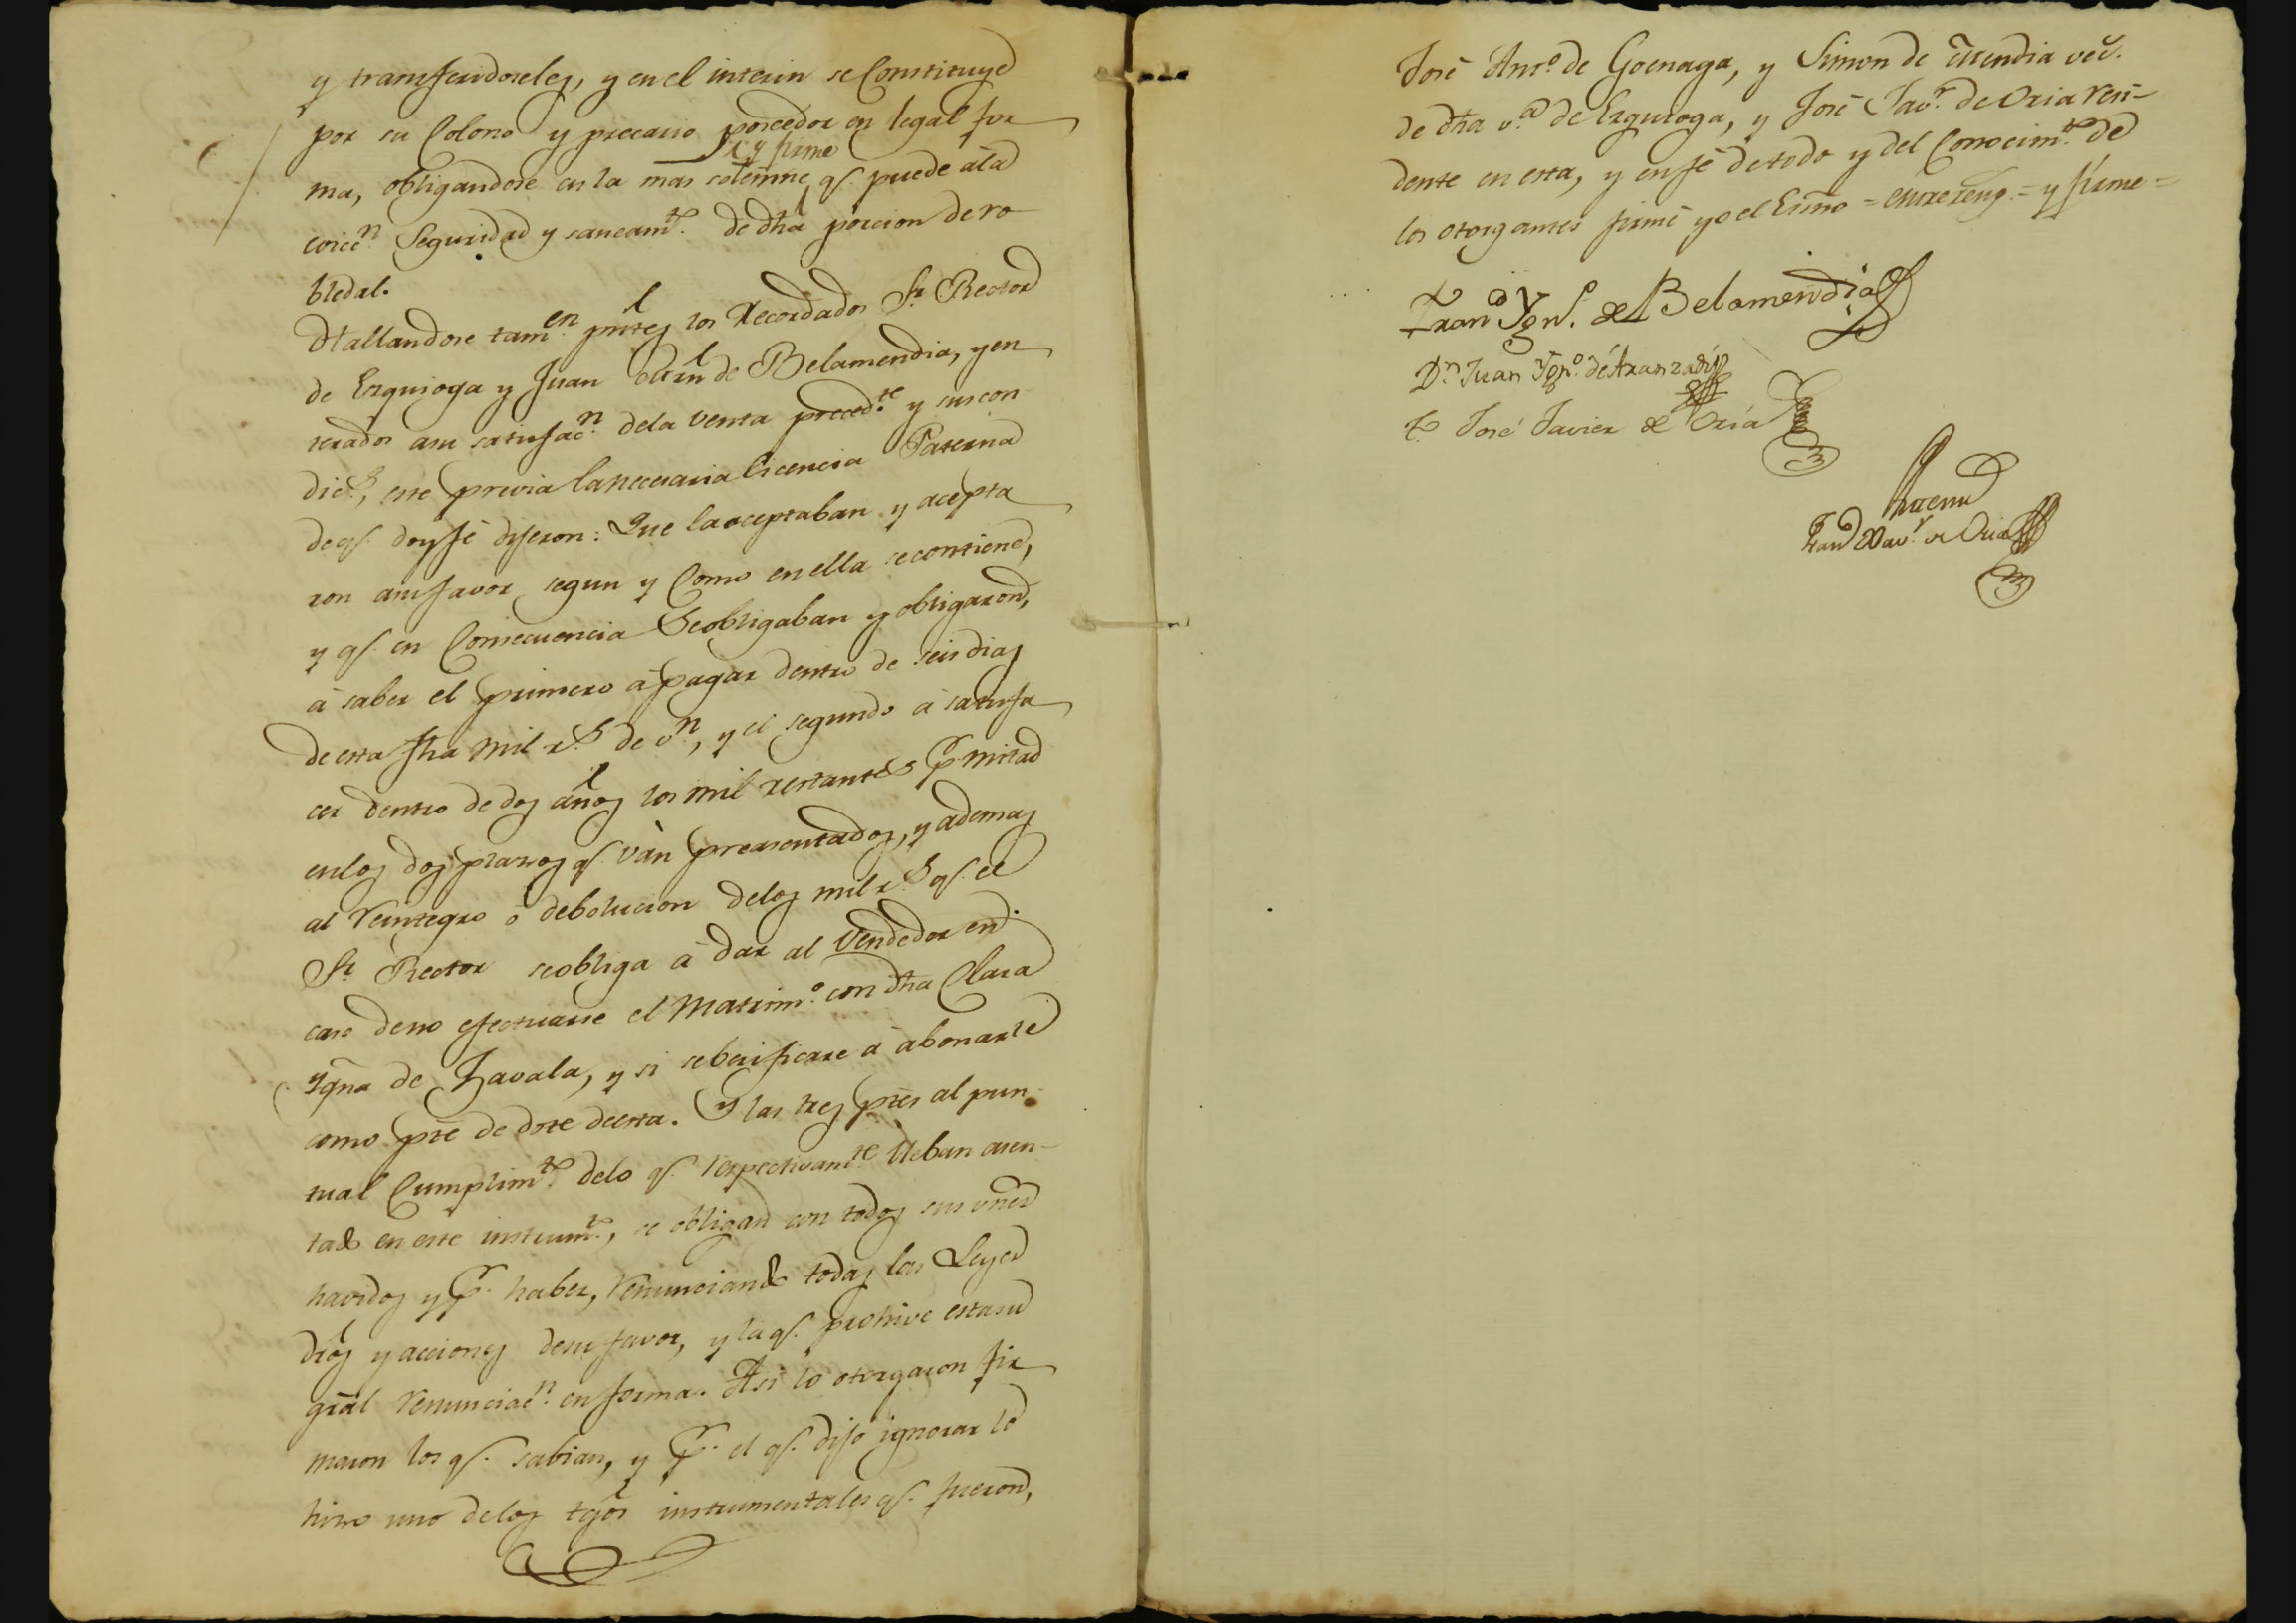 y transferidoseles, y en el interin se Constituye
por su Colono y precario poseedor en legal for
y firme
ma, obligandose en la mas solemne qe. puede á la
evicc.n Seguridad y saneamto. de dha porcion de ro
bledal.
Hallandose tamen. pntes los Recordados Sr. Rector
de Ezquioga y Juan Mrn de Belamendia, y en
terados a su satisfacn. de la venta precedte. y sus con
dics, este previa la necesaria licencia Paterna
de qe. doy fé dijeron: Que la aceptaban y acepta
ron a su favor segun y Como en ella se contiene,
y qe. en Consecuencia Se obligaban y obligaron,
á saber el primero á pagar dentro de seis dias
de esta fha mil rs. de vn, y el segundo á satisfa
cer dentro de dos años los mil restantes pr. mitad
en los dos plazos qe. ván preasentados, y ademas
al Reintegro ó debolucion de los mil rs. qe. el
Sr. Rector se obliga á dar al Vendedor en
caso de no efectuarse el Matrimo. con dha Clara
Ygna de Zavala, y si se berificare á abonarle
como pte de dote de esta. Y las tres ptes al pun
tual Cumplimto. de lo qe. respectivamte. lleban asen-
tado en este instrumto., se obligan con todos sus vnes
havidos y pr. haber, Renunciando todas las Leyes
dros y acciones de su favor, y la qe. prohive esta su
gral renunciacn. en forma. Asi lo otorgaron fir
maron los qe. sabian, y pr. el qe. dijo ignorar lo
hizo uno de los tgos instrumentales qe. fueron,
José Anto. de Goenaga, y Simon de Arendia vec.
de dha va. de Ezquioga, y José Javr. de Oria resi-
dente en esta, y en fé de todo y del Conocimto. de
los otorgantes firmé yo el Esno = entrereng. = y firme =
Fran Ygno. de Belamendia
Dn. Juan Ygno. de Aranzadi
To José Javier de Oria
Antemi
Fran Xavr. de Oria